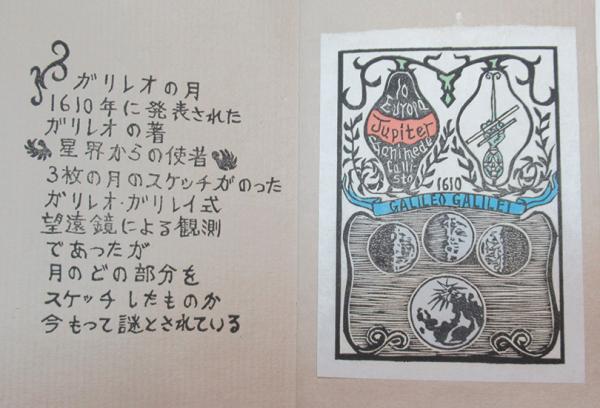 ガリレオの月
1610年に発表された
ガリレオの著
星界からの使者
3枚の月のスケッチがのった
ガリレオ・ガリレイ式
望遠鏡による観測
であったが
月のどの部分を
スケッチしたものか
今もって謎とされている
Io
Europa
Jupiter
Ganimede
Calli
sto
1610
GALILEO GALILEI